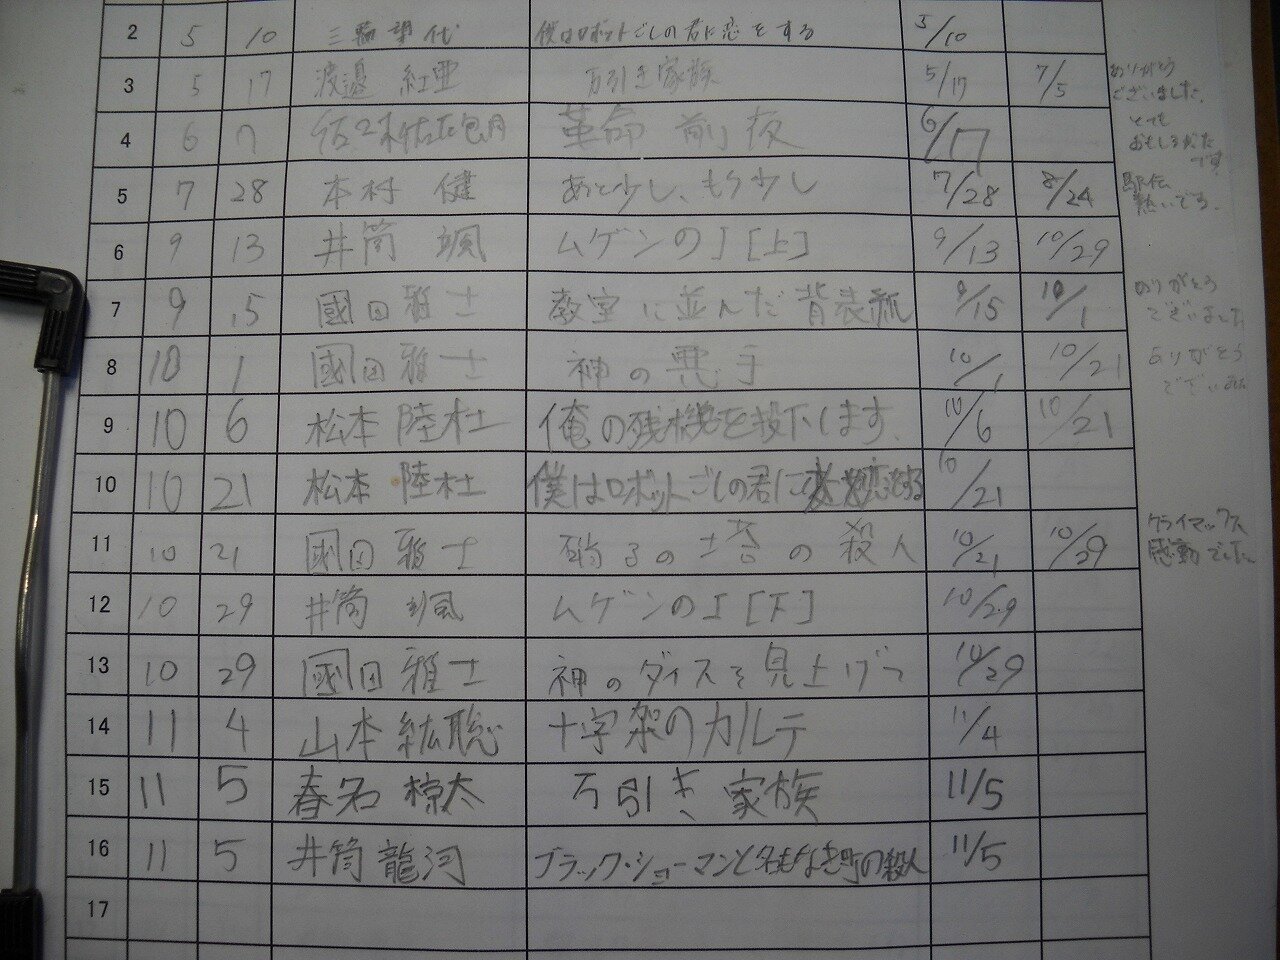 2 5 10 三輪 代 僕はロボットごしの君に恋をする 5/10
3 5 17 渡邉 紅亜 万引き家族 5/17 7/5 ありがとうございました。
4 6 7 革命前夜 6/17 とてもおもしろかったです
5 7 28 本村 健 あと少し、もう少し 7/28 8/24 駅伝熱いです。
6 9 13 井筒 颯 ムゲンのI[上] 9/13 10/29
7 9 15 國田雅士 教室に並んだ背表紙 9/15 10/1 ありがとうございました
8 10 1 國田雅士 神の悪手 10/1 10/21 ありがとうござい
9 10 6 松本 陸杜 俺の残機を投下します。 10/6 10/21
10 10 21 松本 陸杜 僕はロボットごしの君に恋をする 10/21
11 10 21 國田雅士 硝子の塔の殺人 10/21 10/29 クライマックス感動でした。
12 10 29 井筒 颯 ムゲンのI[下] 10/29
13 10 29 國田雅士 神のダイスを見上げて 10/29
14 11 4 山本紘聡 十字架のカルテ 11/4
15 11 5 春名椋太 万引き家族 11/5
16 11 5 井筒龍河 ブラック・ショーマンと名もなき町の殺人 11/5
17